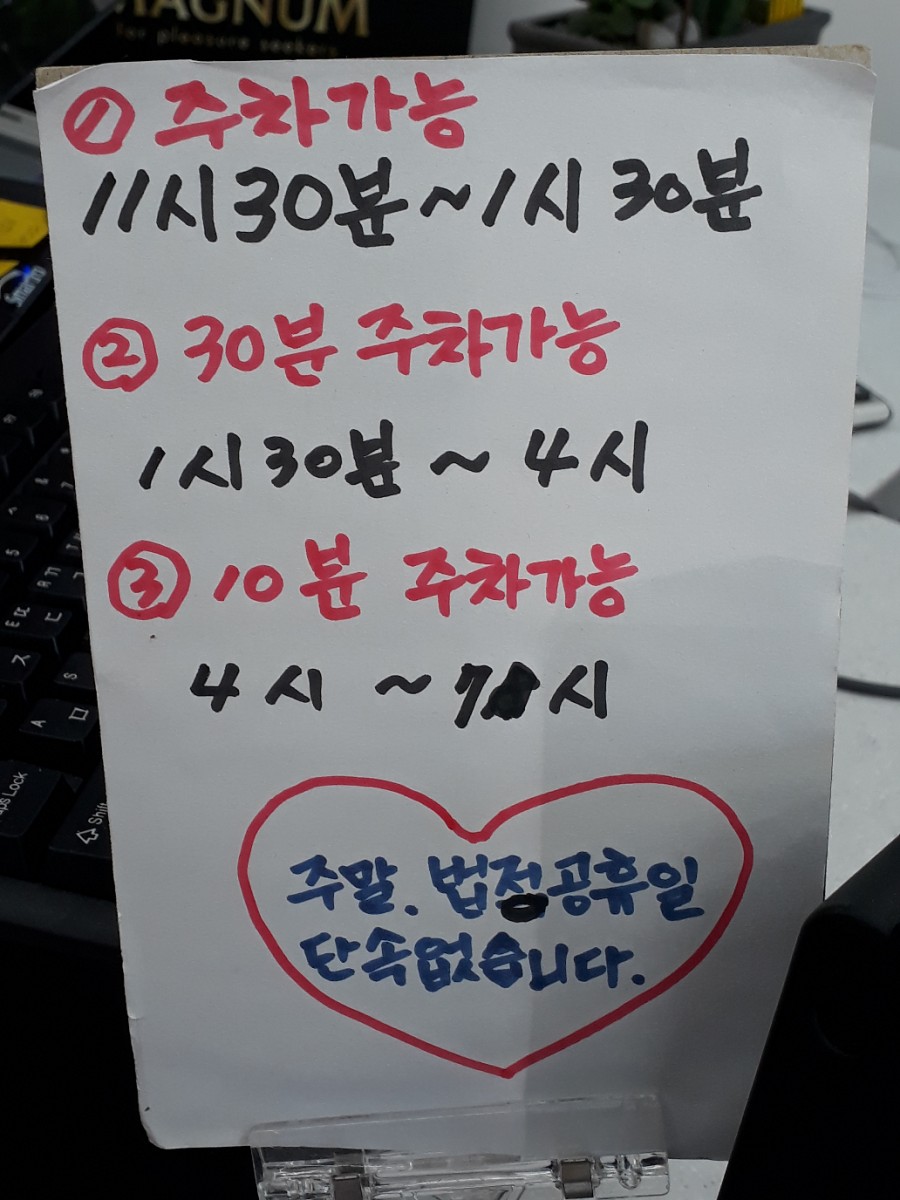 MAGNUM
for pleasure seekers
① 주차가능
11시 30분 ~ 1시 30분
② 30분 주차가능
1시 30분 ~ 4시
③ 10분 주차가능
4시 ~ 7시
주말. 법정공휴일
단속없습니다.
Caps Lock
Shift
A ㅁ
S